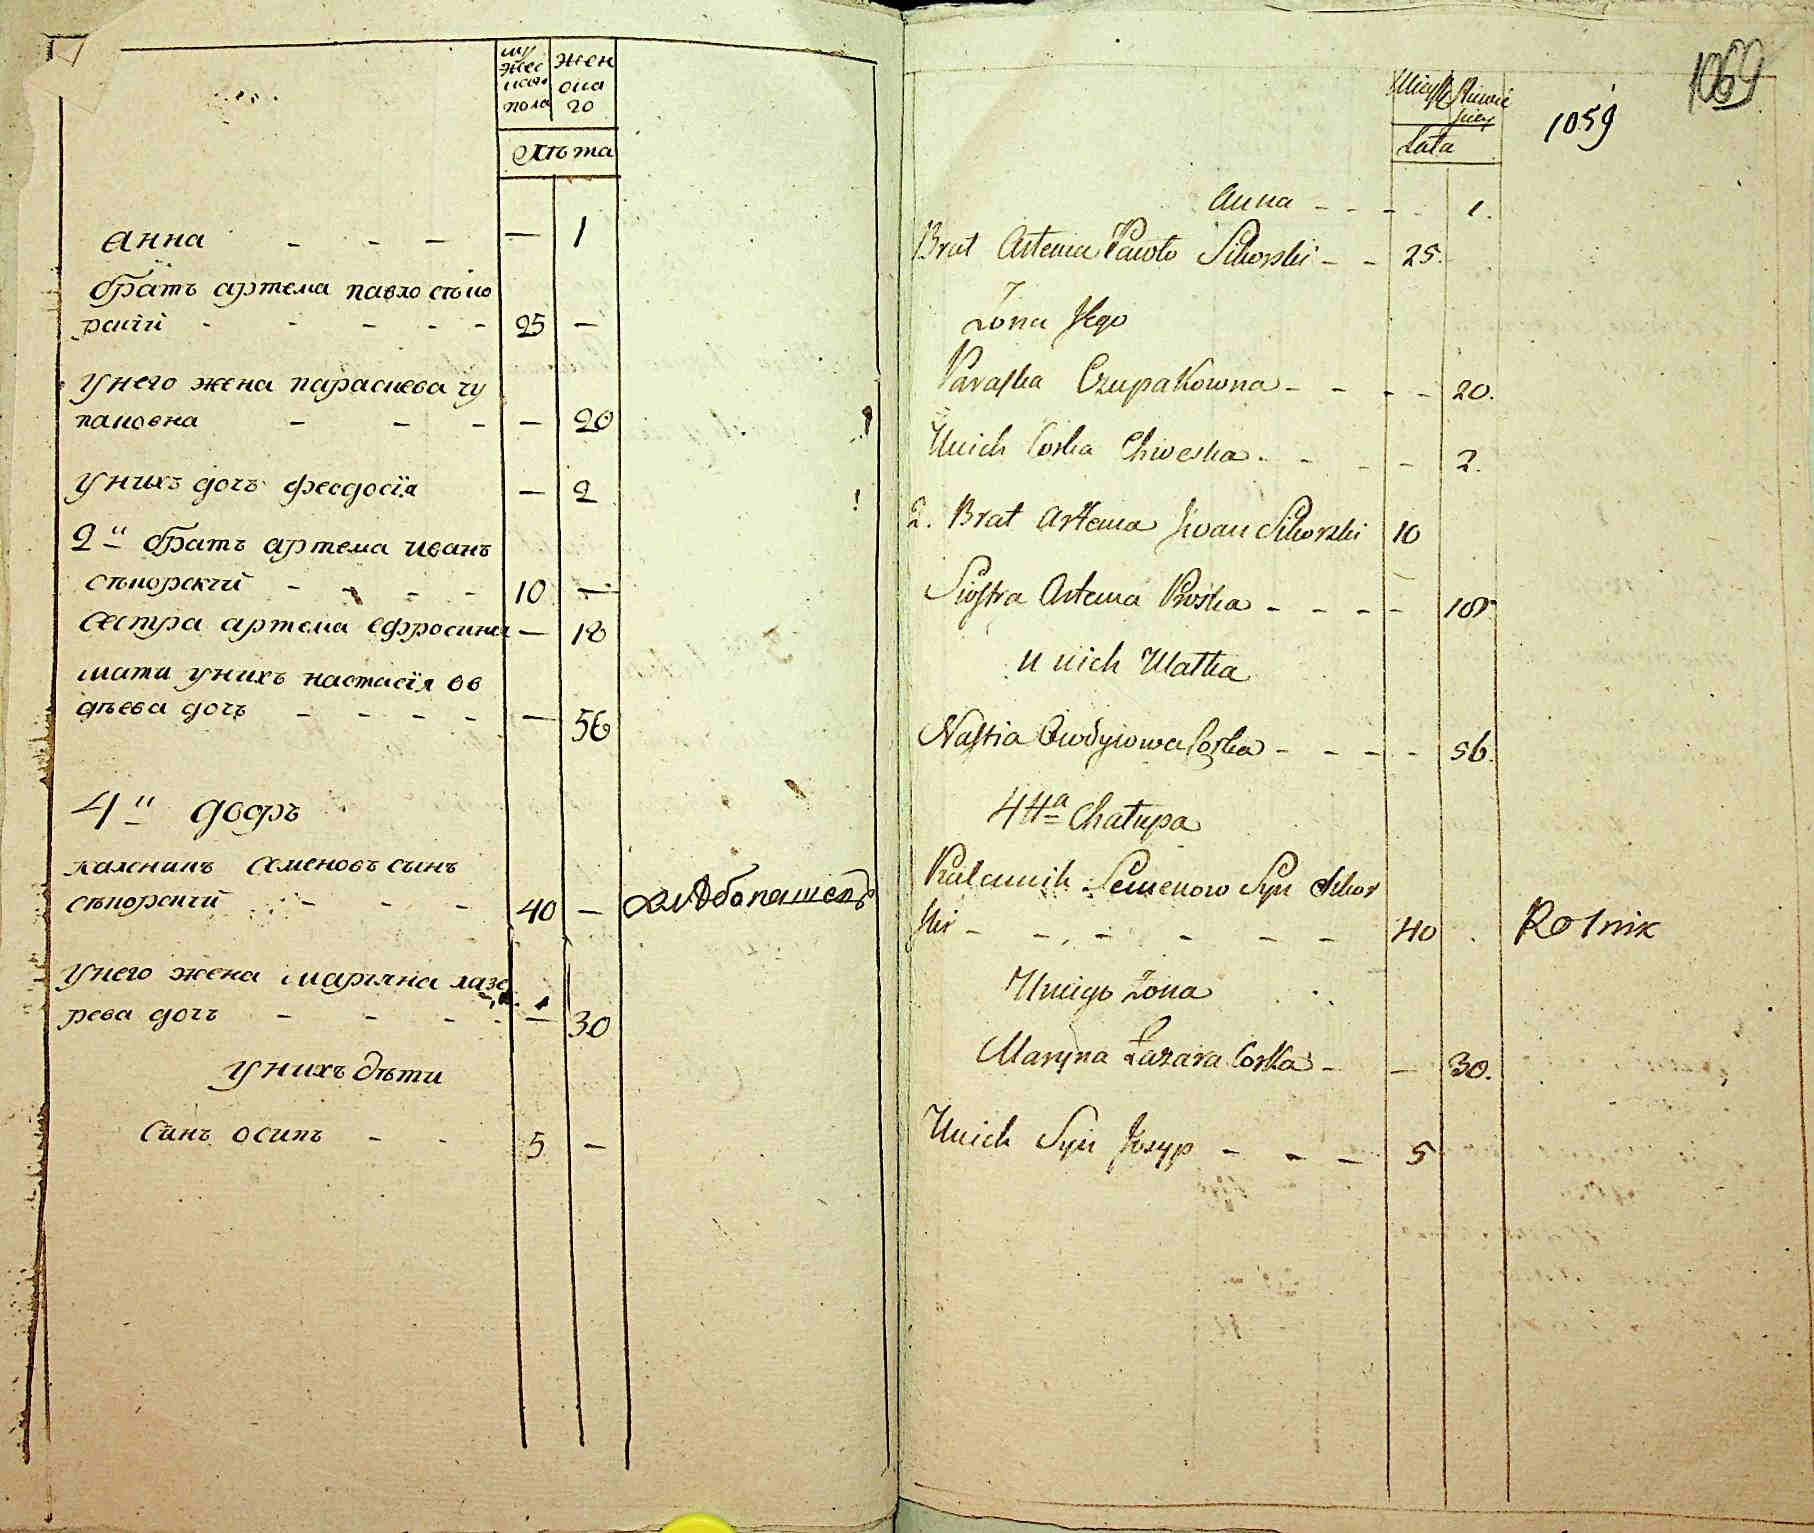 му
жес
каго
пола
жен
ска
го
лѣта
анна - - - — 1
братъ артема павло сѣко
рский - - - - - 25 —
у него жена параскева чу
паковна - - - — 20
у нихъ дочь феодосїя — 2
2й братъ артема иванъ
сѣкорский - - - - 10 —
сестра артема ефросиния — 18
мати у нихъ настасїя ов
дѣева дочь - - - - — 56
4й дворъ
каленикъ семеновъ сынъ
сѣкорский - - - 40 — хлѣбопашецъ
у него жена марьяна лаза
рева дочь - - - - — 30
у нихъ дѣти
синъ осипъ - - 5 —
1069
1059
Lata
Anna - - - - 1.
Brat Artema Pawło Sikorski - - 25.
Żona Jego
Paraska Czupakowna - - - - 20.
U nich Corka Chweska - - - - 2.
2. Brat Artema Jwan Sikorski 10
Siostra Artema Proska - - - - 18.
U nich Matka
Nastia Owdyiowa Corka - - - - 56.
4ta Chałupa
Kalennik Semenow Syn Sikor
ski - - - - - - 40 . Rolnik
U niego Żona
Maryna Łazara Corka - - 30.
U nich Syn Josyp - - - 5